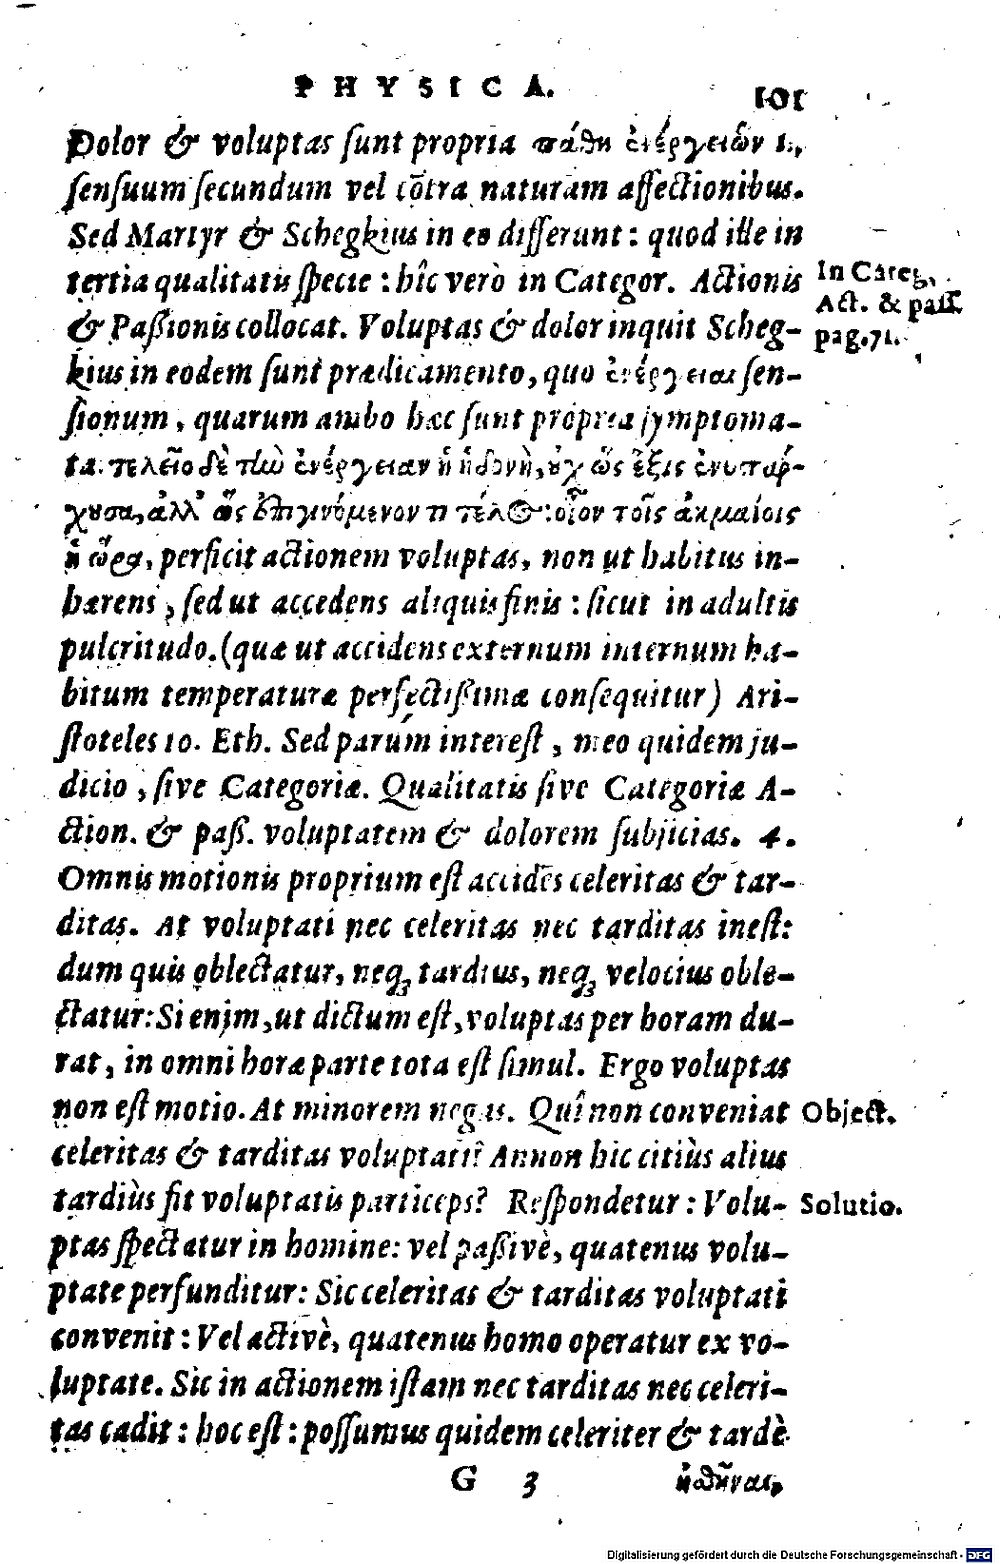 PHYSICA. 101
Dolor & voluptas ſunt propria πάθη ἐνέργειῶν i.,
ſenſuum ſecundum vel cōtra naturam affectionibus.
Sed Martyr & Schegkius in eo differunt: quod ille in
tertia qualitatis ſpecie: hîc verò in Categor. Actionis
In Categ.
Act. & paſſ.
pag. 71.
& Paßionis collocat. Voluptas & dolor inquit Scheg-
kius in eodem ſunt prædicamento, quo ἐνέργειαι ſen-
ſionum, quarum ambo hæc ſunt propria ſymptoma-
ta. τελειοῖ δὲ τὴν ἐνέργειαν ἡ ἡδονὴ, ȣ̓χ ὡς ἕξις ἐνυπάρ-
χȣσα, ἀλλ' ὡς ἐπιγινόμενον τι τέλος: οἷον τοῖς ἀκμαίοις
ἡ ὥρα, perficit actionem voluptas, non ut habitus in-
hærens, ſed ut accedens aliquis finis: ſicut in adultis
pulcritudo. (quæ ut accidens externum internum ha-
bitum temperaturæ perfectißimæ conſequitur) Ari-
ſtoteles 10. Eth. Sed parùm intereſt, meo quidem ju-
dicio, ſive Categoriæ. Qualitatis ſive Categoriæ A-
ction. & paß. voluptatem & dolorem ſubjicias. 4.
Omnis motionis proprium eſt accidēs celeritas & tar-
ditas. At voluptati nec celeritas nec tarditas ineſt:
dum quis oblectatur, neqꝫ tardius, neqꝫ velocius oble-
ctatur: Si enim, ut dictum eſt, voluptas per horam du-
rat, in omni horæ parte tota eſt ſimul. Ergo voluptas
non eſt motio. At minorem negas. Quî non conveniat
Object.
celeritas & tarditas voluptati? Annon hic citiùs alius
tardiùs fit voluptatis particeps? Reſpondetur: Volu-
Solutio.
ptas ſpectatur in homine: vel paßivè, quatenus volu-
ptate perfunditur: Sic celeritas & tarditas voluptati
convenit: Vel activè, quatenus homo operatur ex vo-
luptate. Sic in actionem iſtam nec tarditas nec celeri-
tas cadit: hoc eſt: poſſumus quidem celeriter & tardè
G 3 ἡσθῆναι,
Digitalisierung gefördert durch die Deutsche Forschungsgemeinschaft - DFG